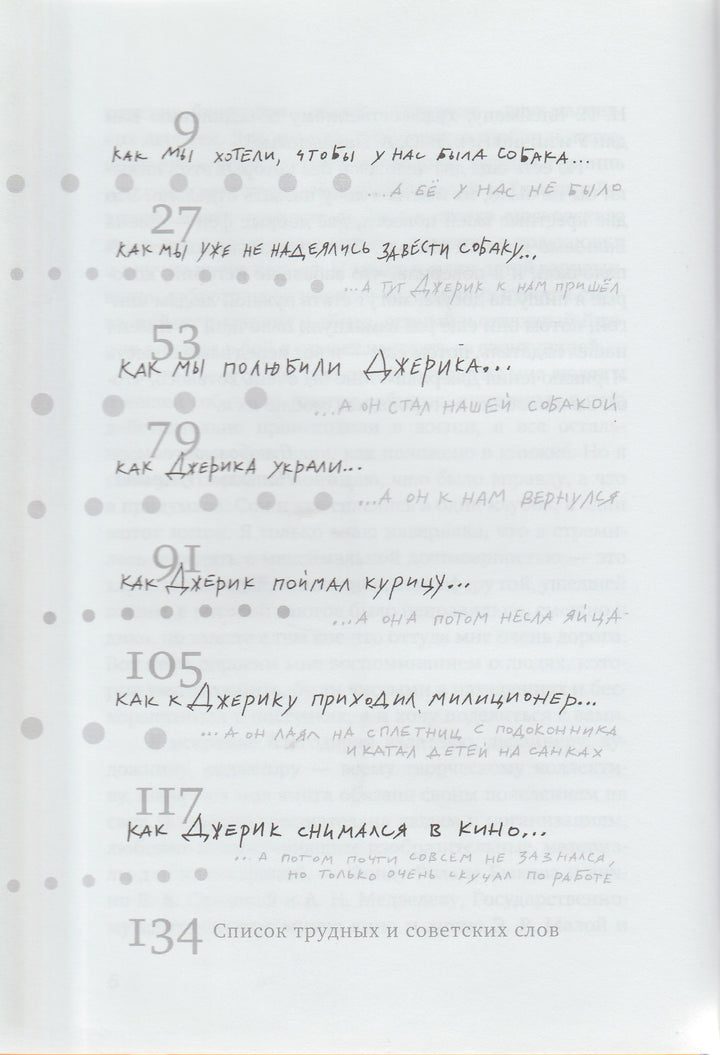 9
как мы хотели, чтобы у нас была собака...
...а её у нас не было
27
как мы уже не надеялись завести собаку...
...а тут Джерик к нам пришёл
53
как мы полюбили Джерика...
...а он стал нашей собакой
79
как Джерика украли...
...а он к нам вернулся
91
как Джерик поймал курицу...
...а она потом несла яйца
105
как к Джерику приходил милиционер...
...а он лаял на сплетниц с подоконника
и катал детей на санках
117
как Джерик снимался в кино...
...а потом почти совсем не зазнался,
но только очень скучал по работе
134 Список трудных и советских слов